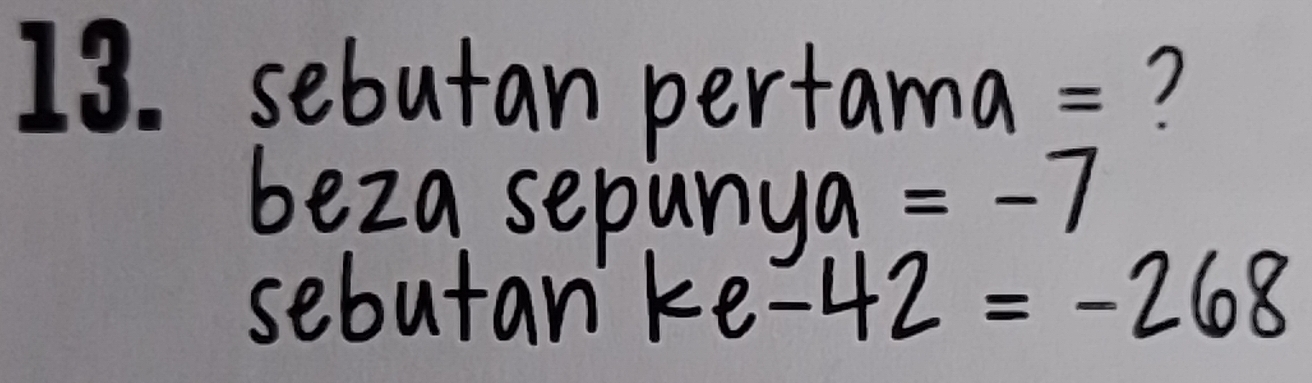 13. sebutan pertama = ?
beza sepunya = -7
sebutan ke-42 = -268